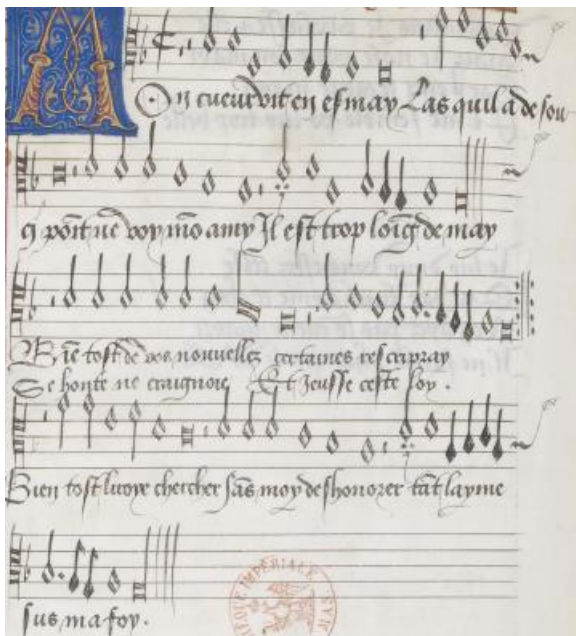 Mon cueur vit en esmay Las quil a de sou
q point ne voy mō amy Il est trop loing de may
Briē tost de vos nouvelles certaines rescripray
Se honte ne craignoie Et jeusse ceste loy .
Bien tost luoye chercher sās moy deshonorer tāt layme
sus ma foy .
IMPERIALE